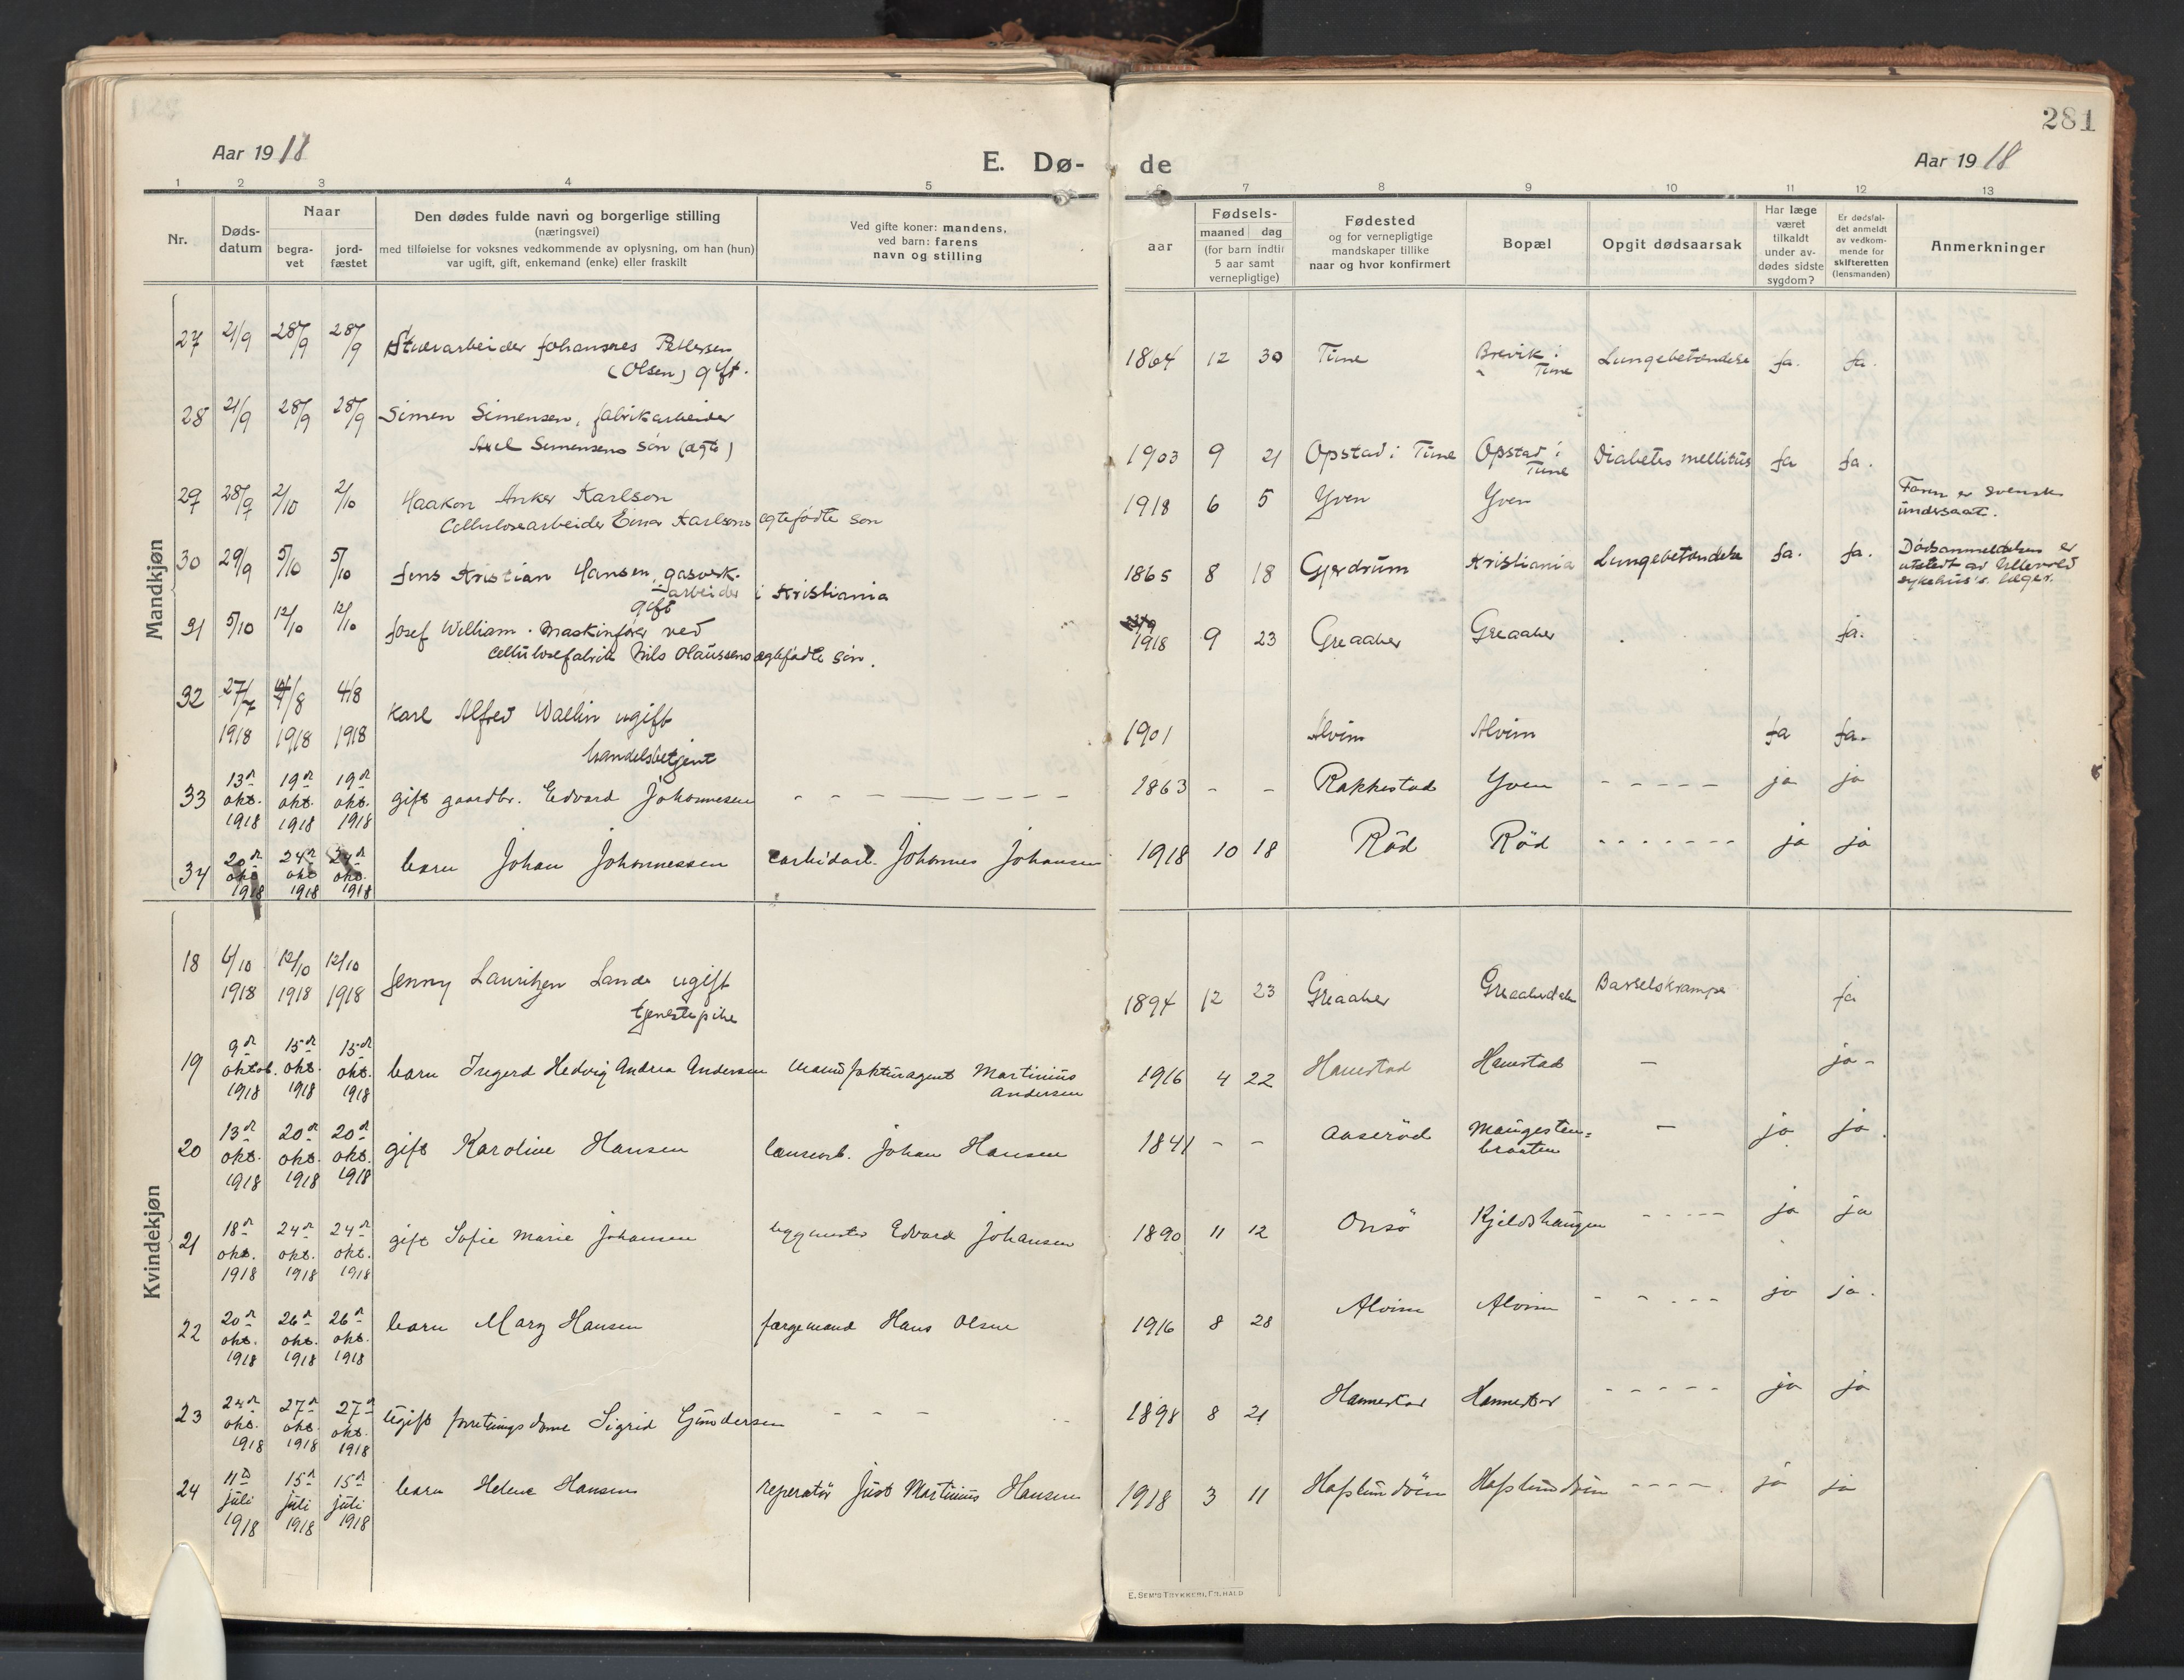 281
Aar 1918
E. Dø-
de
Aar 1918
1 2 3 4 5 6 7 8 9 10 11 12 13
Nr.
Døds-
datum
Naar
begra-
vet
jord-
fæstet
Den dødes fulde navn og borgerlige stilling
(næringsvei)
med tilføielse for voksnes vedkommende av oplysning, om han (hun)
var ugift, gift, enkemand (enke) eller fraskilt
Ved gifte koner: mandens,
ved barn: farens
navn og stilling
aar
Fødsels-
maaned dag
(for barn indtil
5 aar samt
vernepligtige)
Fødested
og for vernepligtige
mandskaper tillike
naar og hvor konfirmert
Bopæl
Opgit dødsaarsak
Har læge
været
tilkaldt
under av-
dødes sidste
sygdom?
Er dødsfal-
det anmeldt
av vedkom-
mende for
skifteretten
(lensmanden)
Anmerkninger
Mandkjøn
27 21/9 28/9 28/9 Stuerarbeider Johannes Pettersen 1864 12 30 Tune Brevik i Lungebetændelse Ja. Ja.
(Olsen) gift. Tune
28 21/9 28/9 28/9 Simen Simensen, fabrikarbeider
Axel Simensens søn (ægte) 1903 9 21 Opstad i Tune Opstad i Diabetes mellitus Ja Ja.
Tune
29 28/9 2/10 2/10 Haakon Anker Karlson 1918 6 5 Yven Yven Faren er svensk
Cellulosearbeider Einar Karlsons ægtefødte søn undersaat.
30 29/9 5/10 5/10 Jens Kristian Hansen, gasverk- 1865 8 18 Gjerdrum Kristiania Lungebetændelse Ja. Ja. Dødsanmeldelsen er
arbeider i Kristiania utstedt av Ullevold
gift sykehus's læger.
31 5/10 12/10 12/10 Josef William. Maskinfører ved 1918 9 23 Greaaker Greaaker Ja.
Cellulosefabrik Nils Olaussens ægtefødte søn.
32 27/7 4/8 4/8 Karl Alfred Wallin ugift 1901 Alvim Alvim Ja Ja.
1918 1918 1918 handelsbetjent
33 13de 19de 19de
okt. okt. okt. gift gaardbr. Edvard Johannesen - - - - - - - 1863 - - Rakkestad Yven - - - - - ja ja
1918 1918 1918
34 20de 24de 24de
okt okt okt. barn Johan Johannessen carbidarb. Johannes Johansen 1918 10 18 Rød Rød - - - - - - - ja ja
1918 1918 1918
Kvindekjøn
18 6/10 12/10 12/10 Jenny Lauritzen Lande ugift 1894 12 23 Greaaker Greaakerdalen Barselskrampe Ja
1918 1918 1918 tjenestepike
19 9de 15de 15de
oktob. okt. okt. barn Ingerd Hedvig Andrea Andersen manufakturagent Martinius 1916 4 22 Hanestad Hanestad - ja -
1918 1918 1918 Andersen
20 13de 20de 20de
okt. okt. okt. gift Karoline Hansen Johan Hansen 1841 - - Aaserød Maugesten= - ja ja.
1918 1918 1918 braaten
21 18de 24de 24de
okt. okt. okt. gift Sofie Marie Johansen byggmester Edvard Johansen 1890 11 12 Onsø Kjeldshaugen - - - - - ja ja
1918 1918 1918
22 20de 26de 26de
okt. okt. okt. barn Mary Hansen færgemand Hans Olsen 1916 8 28 Alvim Alvim - - - - - ja ja.
1918 1918 1918
23 24de 27de 27de
okt. okt. okt. ugift forretningsdame Sigrid Gundersen - - - 1898 8 21 Hannestad Hannestad - - - - - ja ja
1918 1918 1918
24 11te 15de 15de
juli juli juli barn Helene Hansen reperatør Just Martinius Hansen 1918 3 11 Hafslundsøen Hafslundsøen - - - - . ja ja
1918 1918 1918
E. SEM'S TRYKKERI, FR.HALD